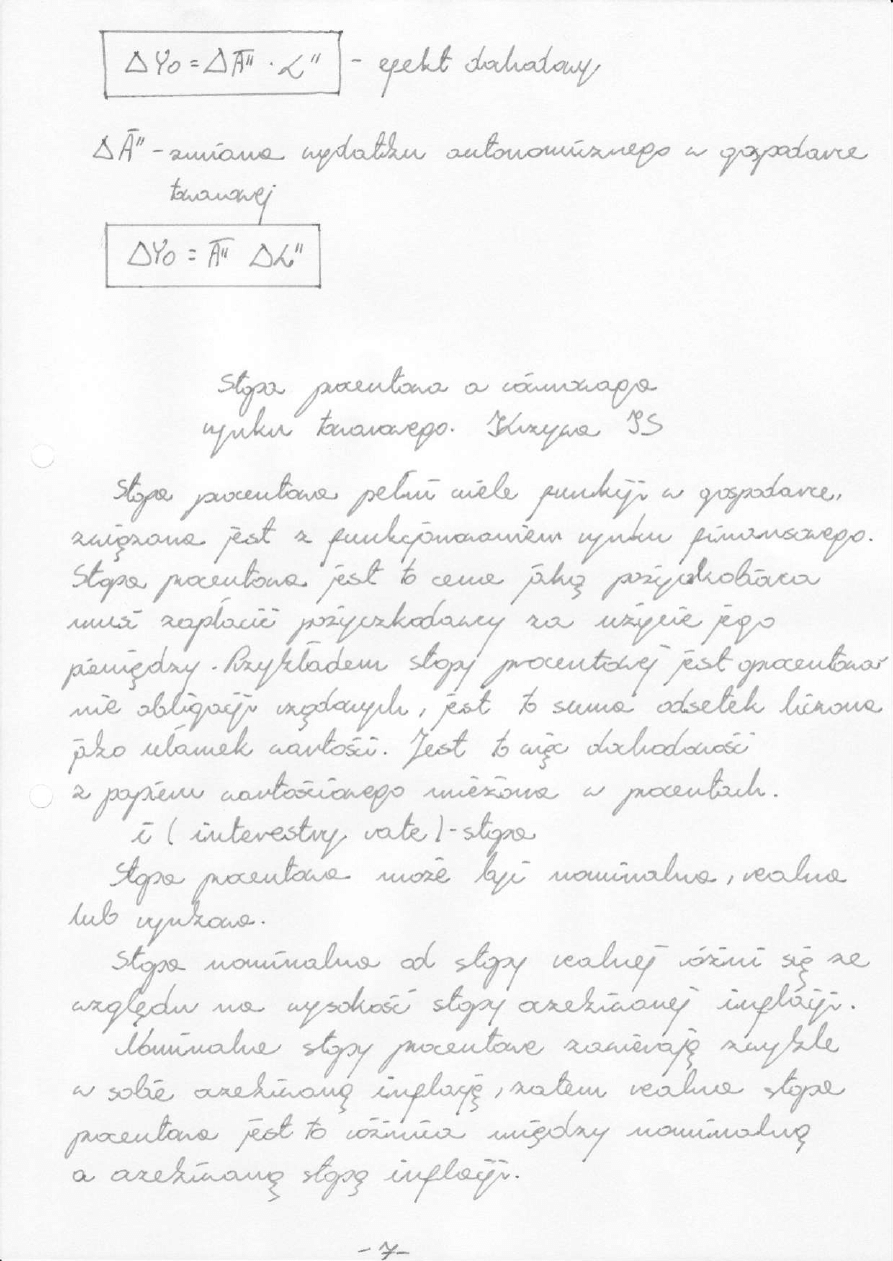 ΔYo = ΔĀ" · α" - efekt dochodowy
ΔĀ" - zmiana wydatku autonomicznego w gospodarce
towarowej
ΔYo = Ā" Δα"
Stopa procentowa a równowaga
rynku towarowego. Krzywa IS
Stopa procentowa pełni wiele funkcji w gospodarce,
związana jest z funkcjonowaniem rynku finansowego.
Stopa procentowa jest to cena jaką pożyczkobiorca
musi zapłacić pożyczkodawcy za użycie jego
pieniędzy. Przykładem stopy procentowej jest oprocentowa
nie obligacji rządowych, jest to suma odsetek liczona
jako ułamek wartości. Jest to więc dochodowość
z papieru wartościowego mierzona w procentach.
i (interestry rate) - stopa
Stopa procentowa może być nominalna, realna
lub rynkowa.
Stopa nominalna od stopy realnej różni się ze
względu na wysokość stopy oczekiwanej inflacji.
Nominalne stopy procentowe zawierają zwykle
w sobie oczekiwaną inflację, zatem realna stopa
procentowa jest to różnica między nominalną
a oczekiwaną stopą inflacji.
-7-